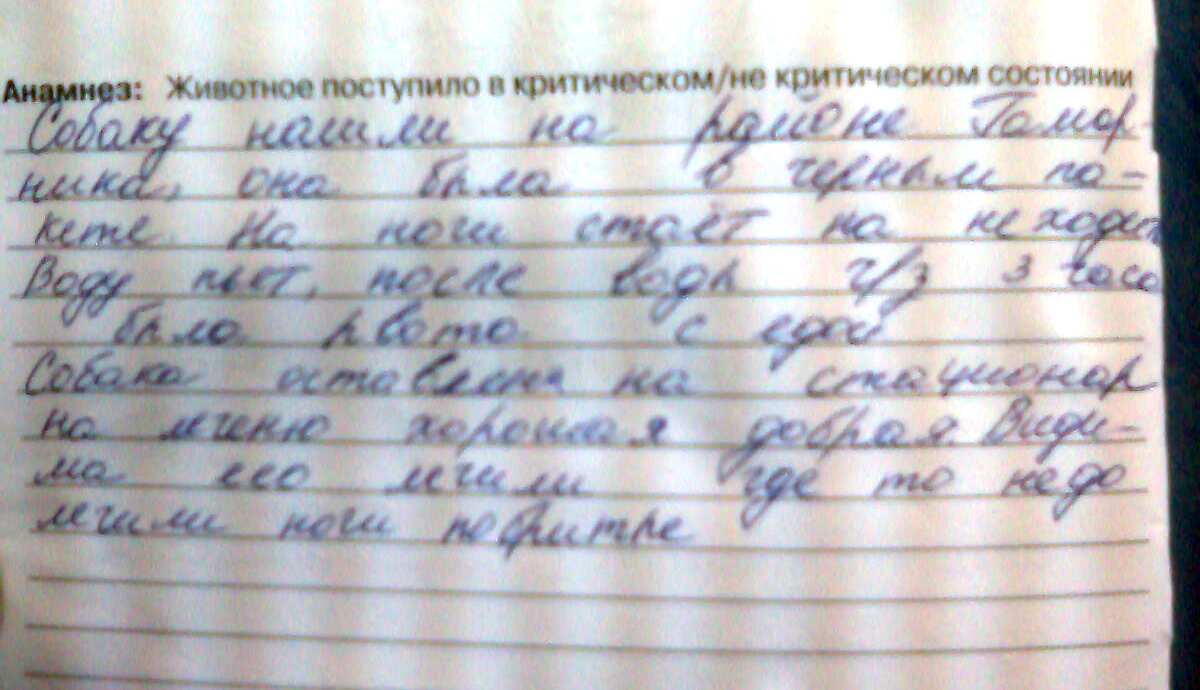 Анамнез: Животное поступило в критическом/не критическом состоянии
Собаку нашли на районе Гомор-
ника, она была в черным па-
кете. На ноги стаёт на не ходит
Воду пьет, после воды ч/з 3 часа
было рвота с едой
Собака оставлена на стационар
на лечению хорошая добрая. Види-
ма его лечили где то недо
лечили ноги побритые